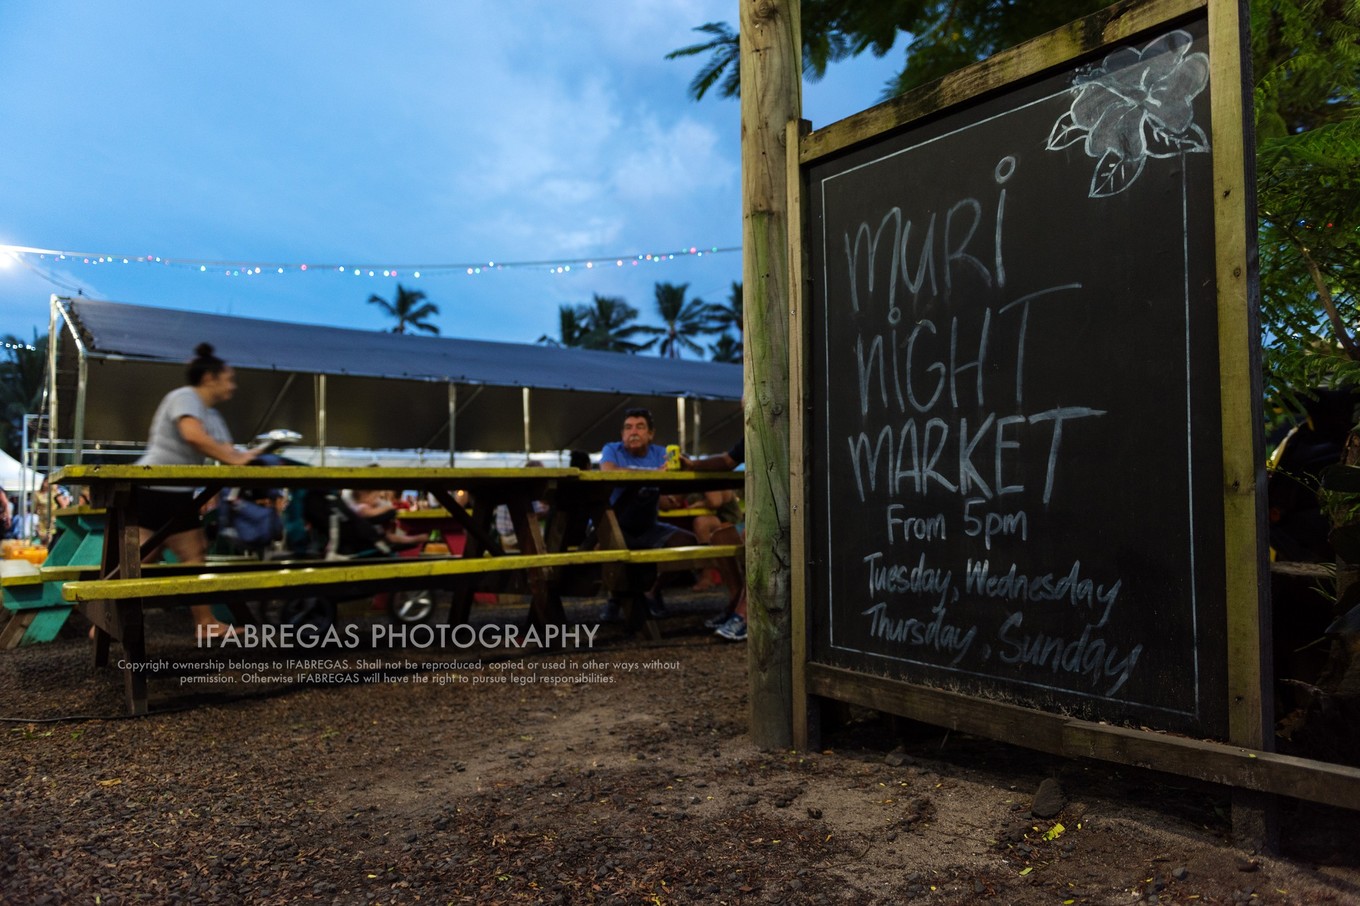 MURi
NiGHT
MARKET
From 5pm
Tuesday, Wednesday
Thursday, Sunday
IFABREGAS PHOTOGRAPHY
Copyright ownership belongs to IFABREGAS. Shall not be reproduced, copied or used in other ways without
permission. Otherwise IFABREGAS will have the right to pursue legal responsibilities.